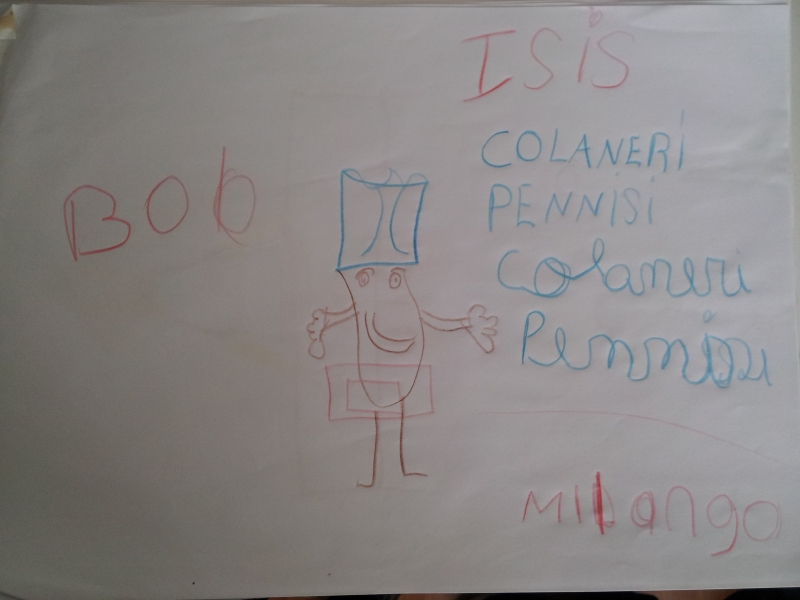 ISIS
COLANERI
PENNISI
Colaneri
Pennisi
BOb
MILango